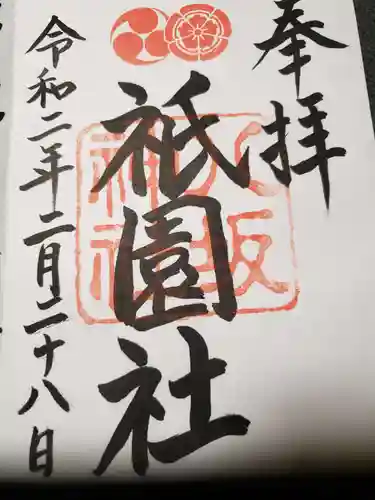 奉拝
八坂神社
祇園社
令和二年二月二十八日